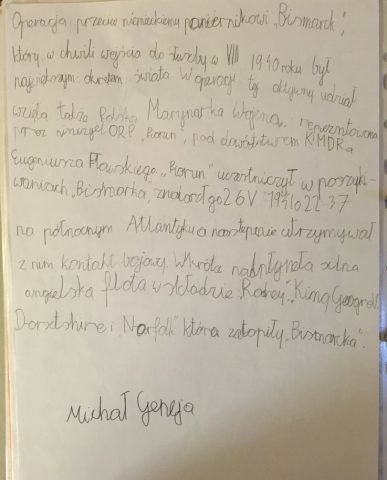 Operacja przeciw niemieckiemu pancernikowi „Bismarck",
który w chwili wejścia do służby w VIII 1940 roku był
największym okrętem świata W operacji tej aktywny udział
wzięła także Polska Marynarka Wojenna, reprezentowana
przez niszczyciel ORP „Piorun", pod dowództwem KMDRa
Eugeniusza Pławskiego. „Piorun" uczestniczył w poszuki-
waniach „Bismarka, znalazł go 26 V 1941 o 22 37
na północnym Atlantyku a następnie utrzymywał
z nim kontakt bojowy. Wkrótce nadpłynęła silna
angielska flota w składzie „Rodney", King Georg
Dorsetshire i „Norfolk" która zatopiły „Bismarcka".
Michał Geneja